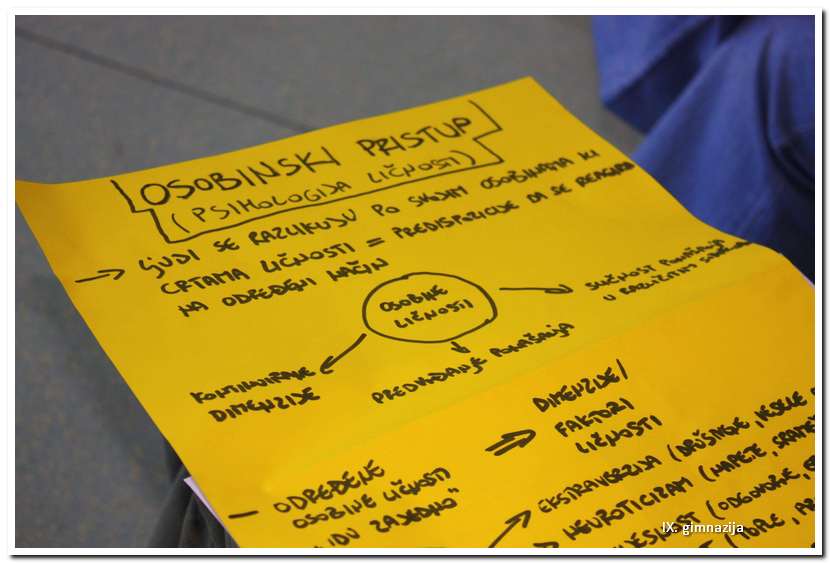 OSOBINSKI PRISTUP
(PSIHOLOGIJA LIČNOSTI)
→ LJUDI SE RAZLIKUJU PO SVOJIM OSOBINAMA ILI
CRTAMA LIČNOSTI = PREDISPOZICIJE DA SE REAGIRA
NA ODREĐENI NAČIN
OSOBINE
LIČNOSTI
SLIČNOST PONAŠANJA
U RAZLIČITIM
PREDVIĐANJE PONAŠANJA
KONTINUIRANE
DIMENZIJE
DIMENZIJE/
FAKTORI
LIČNOSTI
- ODREĐENE
OSOBINE LIČNOSTI
ZAJEDNO"
EKSTRAVERZIJA (DRUŠTVENE, VESELE
NEUROTICIZAM (NAPETE,
(ODGOVORNE,
(TOPLE,
IX. gimnazija